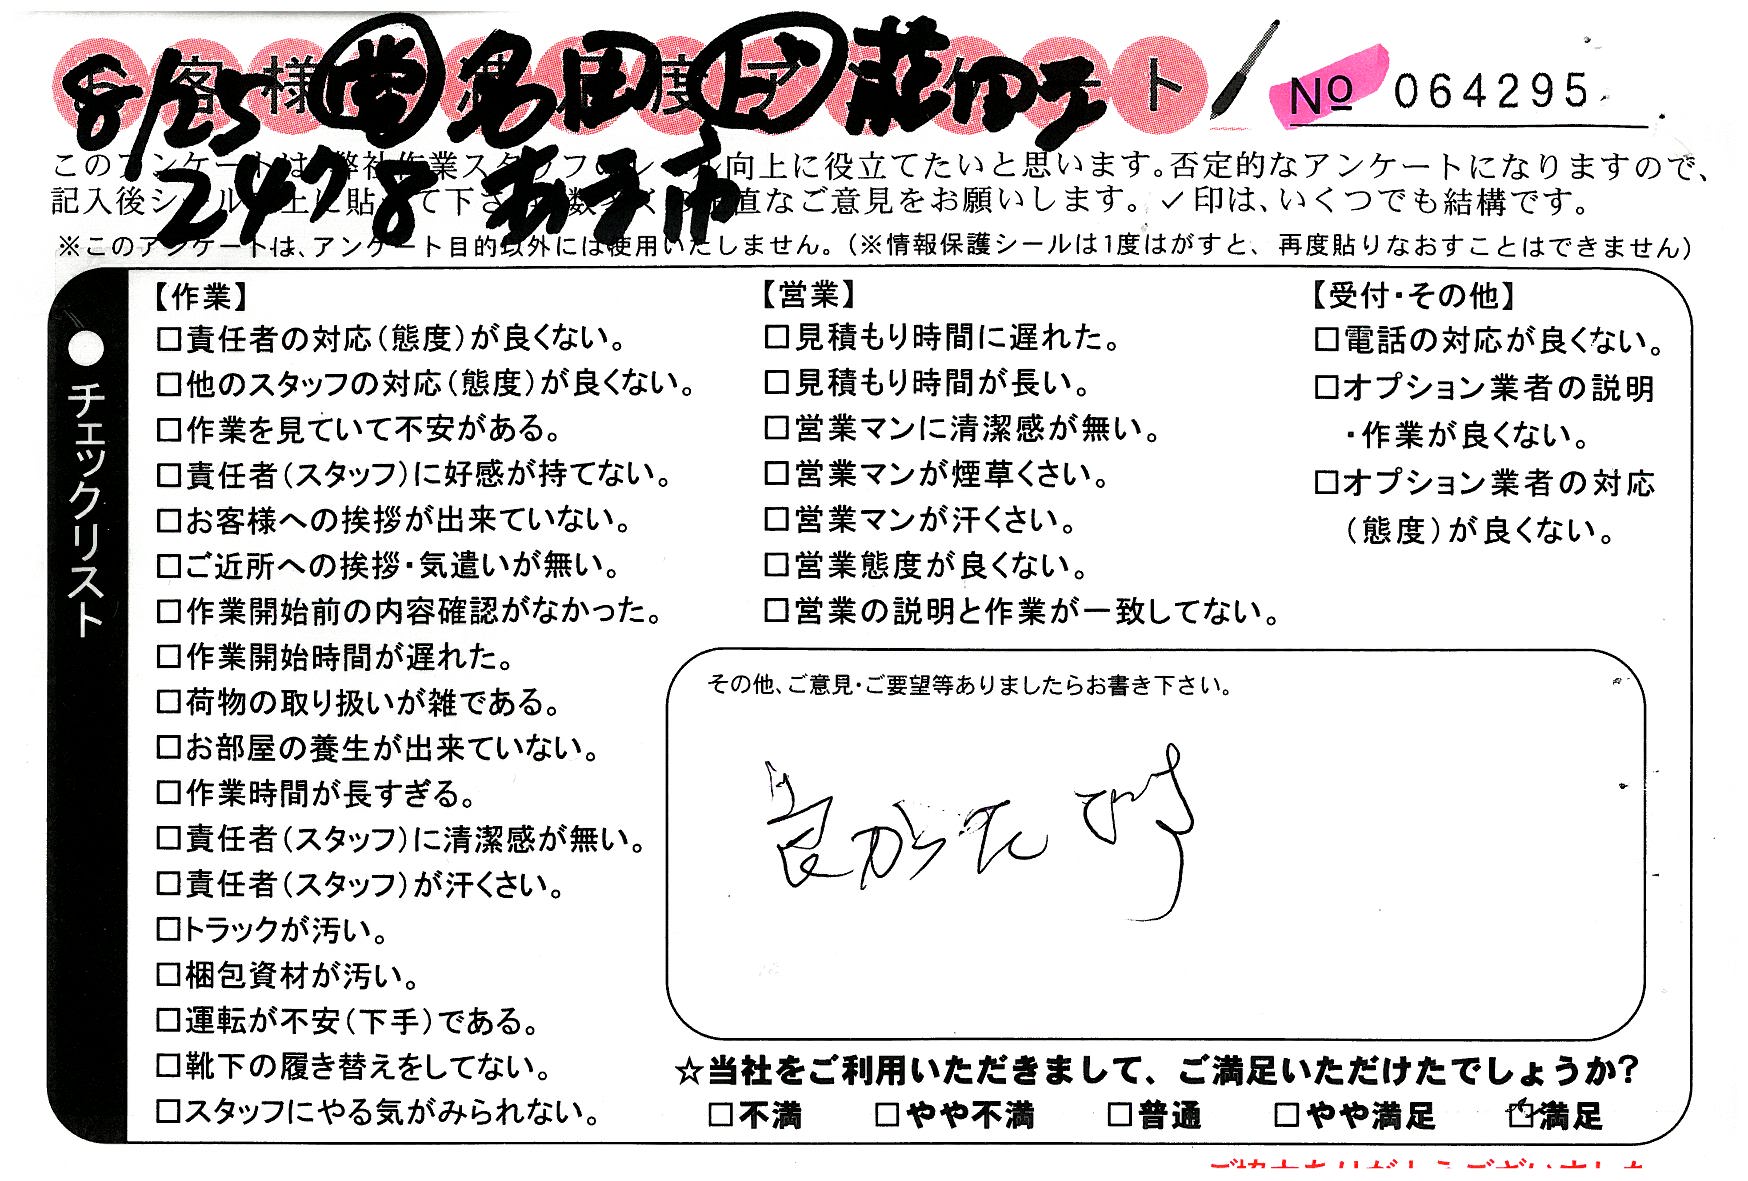 8/25 営 名田 ト 荘田子
お客様満足度アンケート
№ 064295
2478 あま市
このアンケートは、弊社作業スタッフのレベル向上に役立てたいと思います。否定的なアンケートになりますので、
記入後シールを上に貼って下さい。数多くの正直なご意見をお願いします。✓印は、いくつでも結構です。
※このアンケートは、アンケート目的以外には使用いたしません。(※情報保護シールは1度はがすと、再度貼りなおすことはできません)
●チェックリスト
【作業】
□責任者の対応(態度)が良くない。
□他のスタッフの対応(態度)が良くない。
□作業を見ていて不安がある。
□責任者(スタッフ)に好感が持てない。
□お客様への挨拶が出来ていない。
□ご近所への挨拶・気遣いが無い。
□作業開始前の内容確認がなかった。
□作業開始時間が遅れた。
□荷物の取り扱いが雑である。
□お部屋の養生が出来ていない。
□作業時間が長すぎる。
□責任者(スタッフ)に清潔感が無い。
□責任者(スタッフ)が汗くさい。
□トラックが汚い。
□梱包資材が汚い。
□運転が不安(下手)である。
□靴下の履き替えをしてない。
□スタッフにやる気がみられない。
【営業】
□見積もり時間に遅れた。
□見積もり時間が長い。
□営業マンに清潔感が無い。
□営業マンが煙草くさい。
□営業マンが汗くさい。
□営業態度が良くない。
□営業の説明と作業が一致してない。
【受付・その他】
□電話の対応が良くない。
□オプション業者の説明
・作業が良くない。
□オプション業者の対応
(態度)が良くない。
その他、ご意見・ご要望等ありましたらお書き下さい。
良かったです
☆当社をご利用いただきまして、ご満足いただけたでしょうか?
□不満 □やや不満 □普通 □やや満足 ☑満足
ご協力ありがとうございました